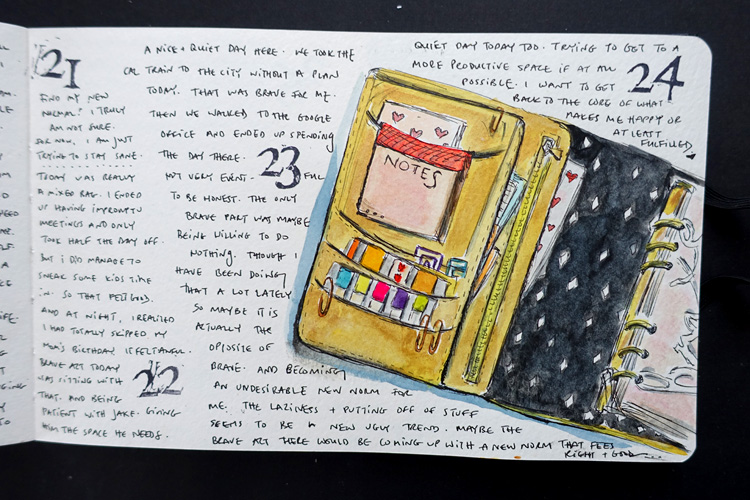 21
FIND MY NEW
NORMAL? I TRULY
AM NOT SURE.
FOR NOW, I AM JUST
TRYING TO STAY SANE.
TODAY WAS REALLY
A MIXED BAG. I ENDED
UP HAVING IMPROMPTU
MEETINGS AND ONLY
TOOK HALF THE DAY OFF.
BUT I DID MANAGE TO
SNEAK SOME KIDS TIME
IN. SO THAT FELT GOOD.
AND AT NIGHT, I REALIZED
I HAD TOTALLY SKIPPED MY
MOM'S BIRTHDAY. IT FELT AWFUL.
BRAVE ART TODAY
WAS SITTING WITH
THAT. AND BEING
PATIENT WITH JAKE. GIVING
HIM THE SPACE HE NEEDS.
22
A NICE + QUIET DAY HERE. WE TOOK THE
CAL TRAIN TO THE CITY WITHOUT A PLAN
TODAY. THAT WAS BRAVE FOR ME.
THEN WE WALKED TO THE GOOGLE
OFFICE AND ENDED UP SPENDING
THE DAY THERE.
23
NOT VERY EVENT-FULL
TO BE HONEST. THE ONLY
BRAVE PART WAS MAYBE
BEING WILLING TO DO
NOTHING. THOUGH I
HAVE BEEN DOING
THAT A LOT LATELY
SO MAYBE IT IS
ACTUALLY THE
OPPOSITE OF
BRAVE. AND BECOMING
AN UNDESIRABLE NEW NORM FOR
ME. THE LAZINESS + PUTTING OFF OF STUFF
SEEMS TO BE A NEW UGLY TREND. MAYBE THE
BRAVE ART THERE WOULD BE COMING UP WITH A NEW NORM THAT FEELS
RIGHT + GOOD...
QUIET DAY TODAY TOO. TRYING TO GET TO A
MORE PRODUCTIVE SPACE IF AT ALL
POSSIBLE. I WANT TO GET
BACK TO THE CORE OF WHAT
MAKES ME HAPPY OR
AT LEAST
FULFILLED.
24
NOTES